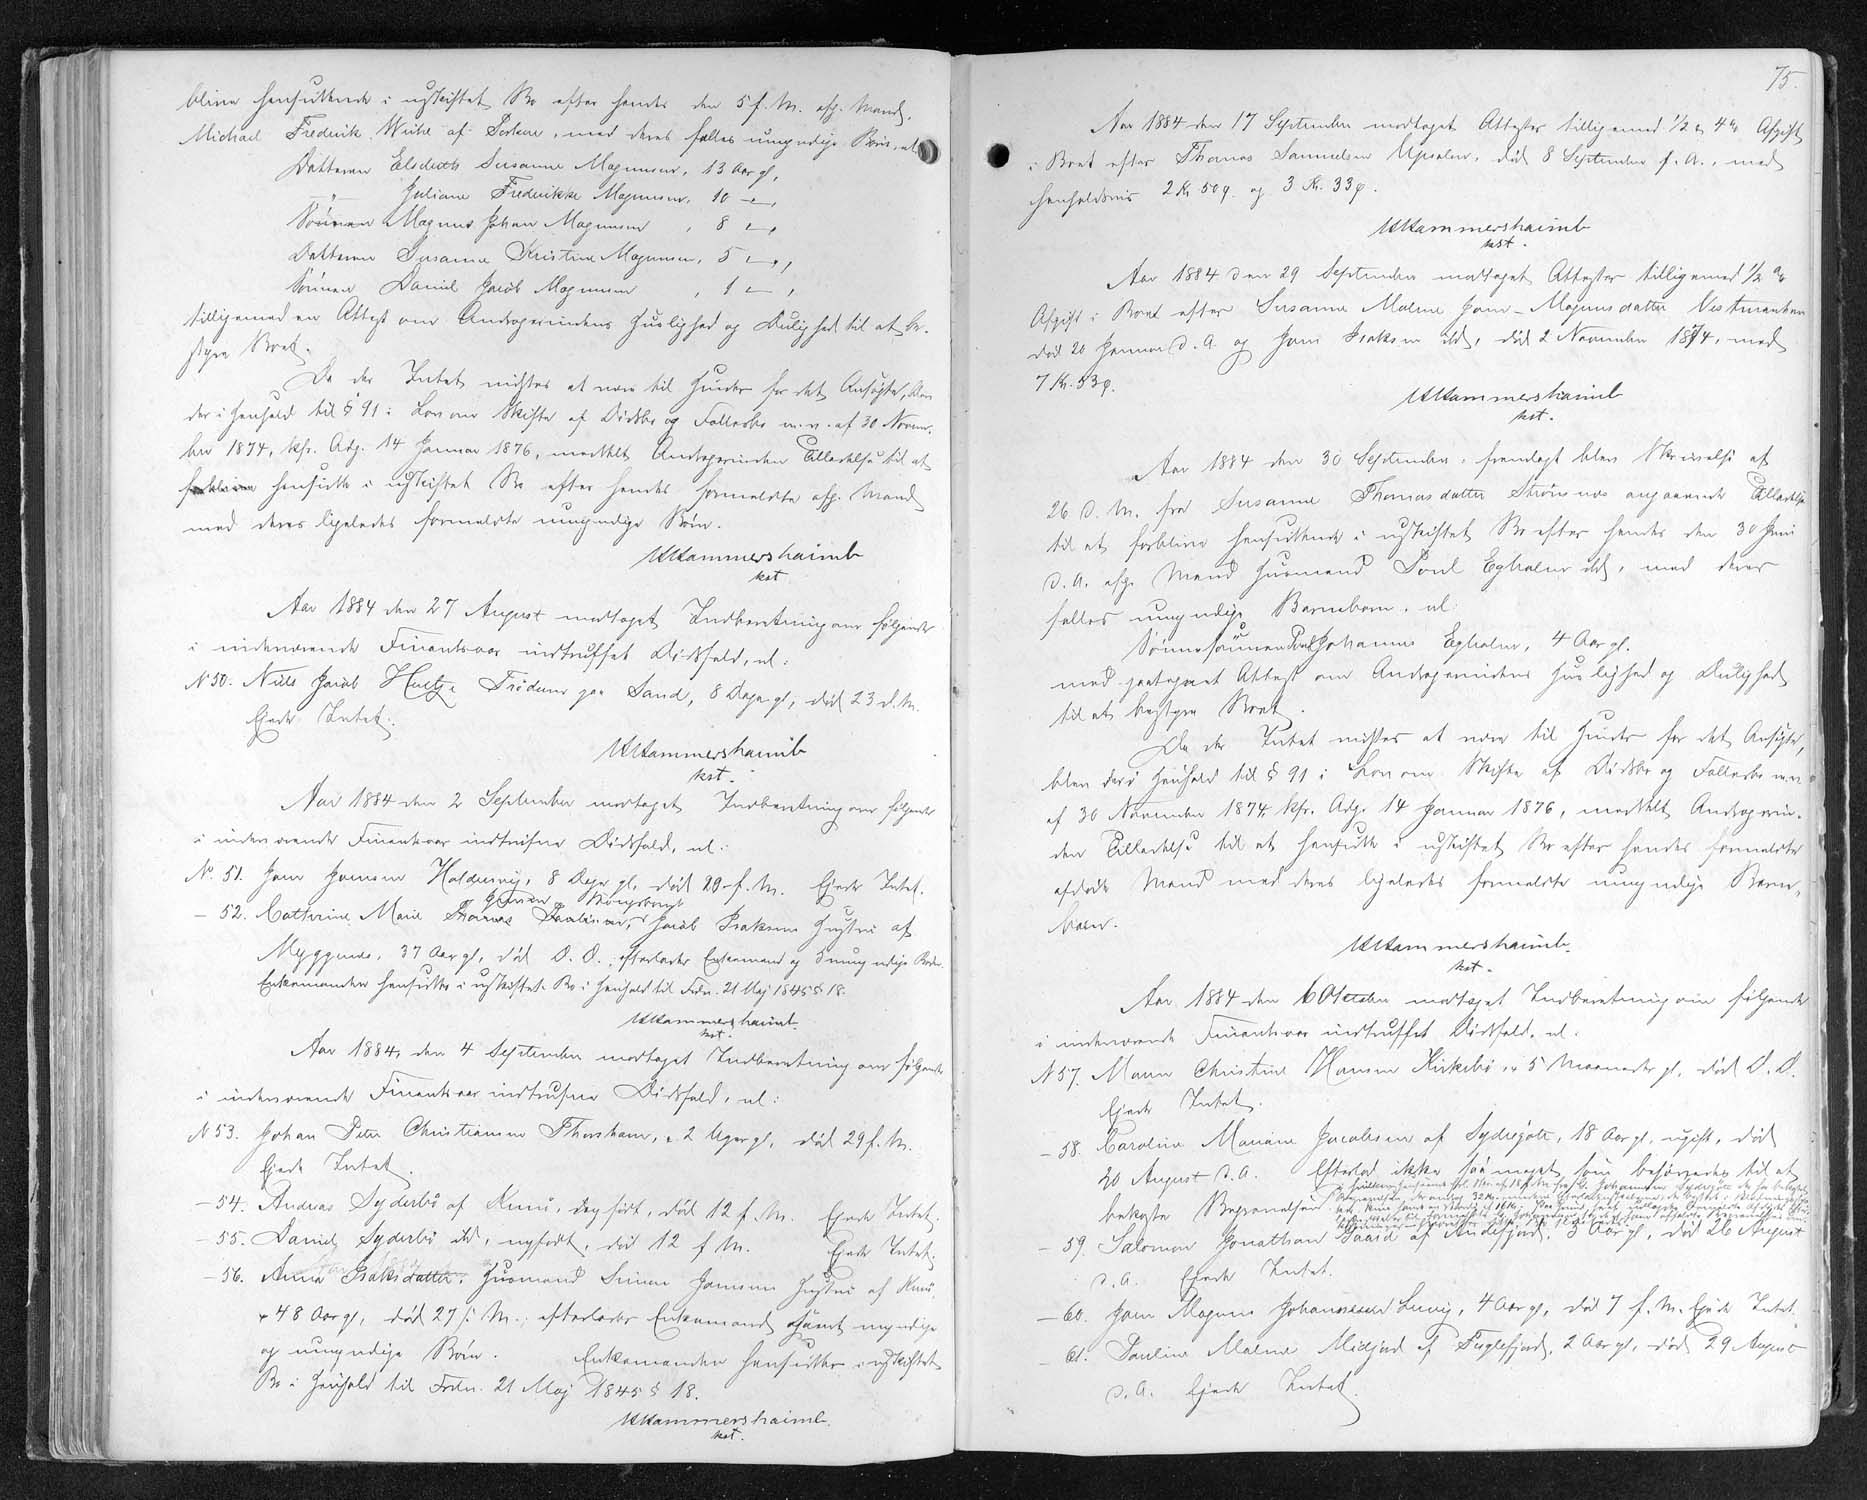 blive hensiddende i uskiftet Bo efter hendes den 5 f. M. afg. Mand,
Michael Frederik Weihe af Porkere, med deres fælles umyndige Børn, nl
Datteren Elsebeth Susanne Magnusen, 13 Aar gl,
" Juliane Frederikke Magnusen, 10 — "
Sønnen Magnus Johan Magnusen, 8 — "
Datteren Susanne Kristine Magnusen, 5 — "
Sønnen Daniel Jacob Magnusen, 1 — "
tilligemed en Attest om Andragerindens Huslighed og Dulighed til at be-
styre Boet.
Da der Intet vidstes at være til Hinder for det Ansøgte, blev
der i Henhold til § 91 i Lov om Skifte af Dødsbo og Fællesbo m.v. af 30 Novem-
ber 1874, kfr. Adg. 14 Januar 1876, meddelt Andragerinden Tilladelse til at
hensidde i uskiftet Bo efter hendes formeldte afg. Mand
med deres ligeledes formeldte umyndige Børn.
Hammershaimb
kst.
Aar 1884 den 27 August modtaget Indberetning om følgende
i indeværende Finantsaar indtruffet Dødsfald, nl:
N 50. Niels Jacob Hentze Frødum paa Sand, 8 Dage gl, død 23 d. M.
Ejede Intet.
Hammershaimb
kst.
Aar 1884 den 2 September modtaget Indberetning om følgende
i indeværende Finantsaar indtrufne Dødsfald, nl:
N. 51. Joen Joensen Haldersvig, 8 Dage gl, død 20 f. M. Ejede Intet.
— 52. Cathrine Marie, Jacob Isaksens Hustru af
Myggenæs, 37 Aar gl, død D. D., efterlader Enkemand og 5 umyndige Børn.
Enkemanden hensidder i uskiftet Bo i Henhold til Frdn. 21 Maj 1845 § 18.
Hammershaimb
kst.
Aar 1884 den 4 September modtaget Indberetning om følgende
i indeværende Finantsaar indtrufne Dødsfald, nl:
N 53. Johan Peter Christiansen Thorshavn, 2 Uger gl, død 29 f. M.
Ejede Intet.
— 54. Andreas Syderbø af Kunø, døgført, død 12 f. M. Ejede Intet.
— 55. Daniel Syderbø ibd, nyfødt, død 12 f M. Ejede Intet.
— 56. Anna Isaksdatter, Husmand Simen Joensens Hustru af Kunø
48 Aar gl, død 27 f. M., efterlader Enkemand samt myndige
og umyndige Børn. Enkemanden hensidder i uskiftet
Bo i Henhold til Frdn. 21 Maj 1845 § 18.
Hammershaimb
kst.
75.
Aar 1884 den 17 September modtaget Attester tilligemed ½ & 4 % Afgift
i Boet efter Thomas Samuelsen Upsalen, død 8 September f. A., med
henholdsvis 2 Kr. 50 ø. og 3 Kr. 33 ø.
Hammershaimb
kst.
Aar 1884 den 29 September modtaget Attester tilligemed ½ %
Afgift i Boet efter Susanne Malene Joen-Magnusdatter Vestmanhavn
død 20 Januar d. A. og Joen Isaksen ibd, død 2 November 1874, med
7 Kr. 53 ø.
Hammershaimb
kst.
Aar 1884 den 30 September, fremlagt blev Skrivelse af
26 d. M. fra Susanne Thomasdatter Strømnæs angaaende Tilladelse
til at forblive hensiddende i uskiftet Bo efter hendes den 30 Juni
d. A. afg. Mand Husmand Poul Egholm ibd, med deres
fælles umyndige Barnebarn, nl:
Sønnesønnen Poul Johannes Egholm, 4 Aar gl.
med paategnet Attest om Andragerindens Huslighed og Dulighed
til at bestyre Boet.
Da der Intet vidstes at være til Hinder for det Ansøgte,
blev der i Henhold til § 91 i Lov om Skifte af Dødsbo og Fællesbo m.v.
af 30 November 1874, kfr. Adg. 14 Januar 1876, meddelt Andragerin-
den Tilladelse til at hensidde i uskiftet Bo efter hendes formeldte
afdøde Mand med deres ligeledes formeldte umyndige Barne-
barn.
Hammershaimb
kst.
Aar 1884 den 6 October modtaget Indberetning om følgende
i indeværende Finantsaar indtruffet Dødsfald, nl:
N 57. Maren Christine Hansen Kirkebø, 5 Maaneder gl, død D. D.
Ejede Intet.
— 58. Caroline Mariane Jacobsen af Sydregøte, 18 Aar gl, ugift, død
20 August d. A. Efterlod ikke saa meget som behøvedes til at
bekoste Begravelsen
— 59. Salomon Jonathan Gaard af Andefjord, 3 Aar gl, død 26 August
d. A. Ejede Intet.
— 60. Joen Magnus Johannesen Lervig, 4 Aar gl, død 7 f. M. Ejede Intet.
— 61. Pauline Malene Midjord af Fuglefjord, 2 Aar gl, død 29 August
d. A. Ejede Intet.